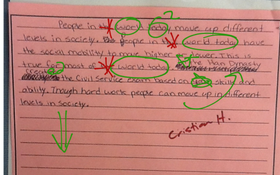 People in world today move up different
levels in society. But people in world today have
the social mobility to move higher or lower. This is
true for most of world today. The Han Dynasty
created the Civil Service exam based on skills and
ability. Though hard work people can move up in different
levels in society.
Cristian H.